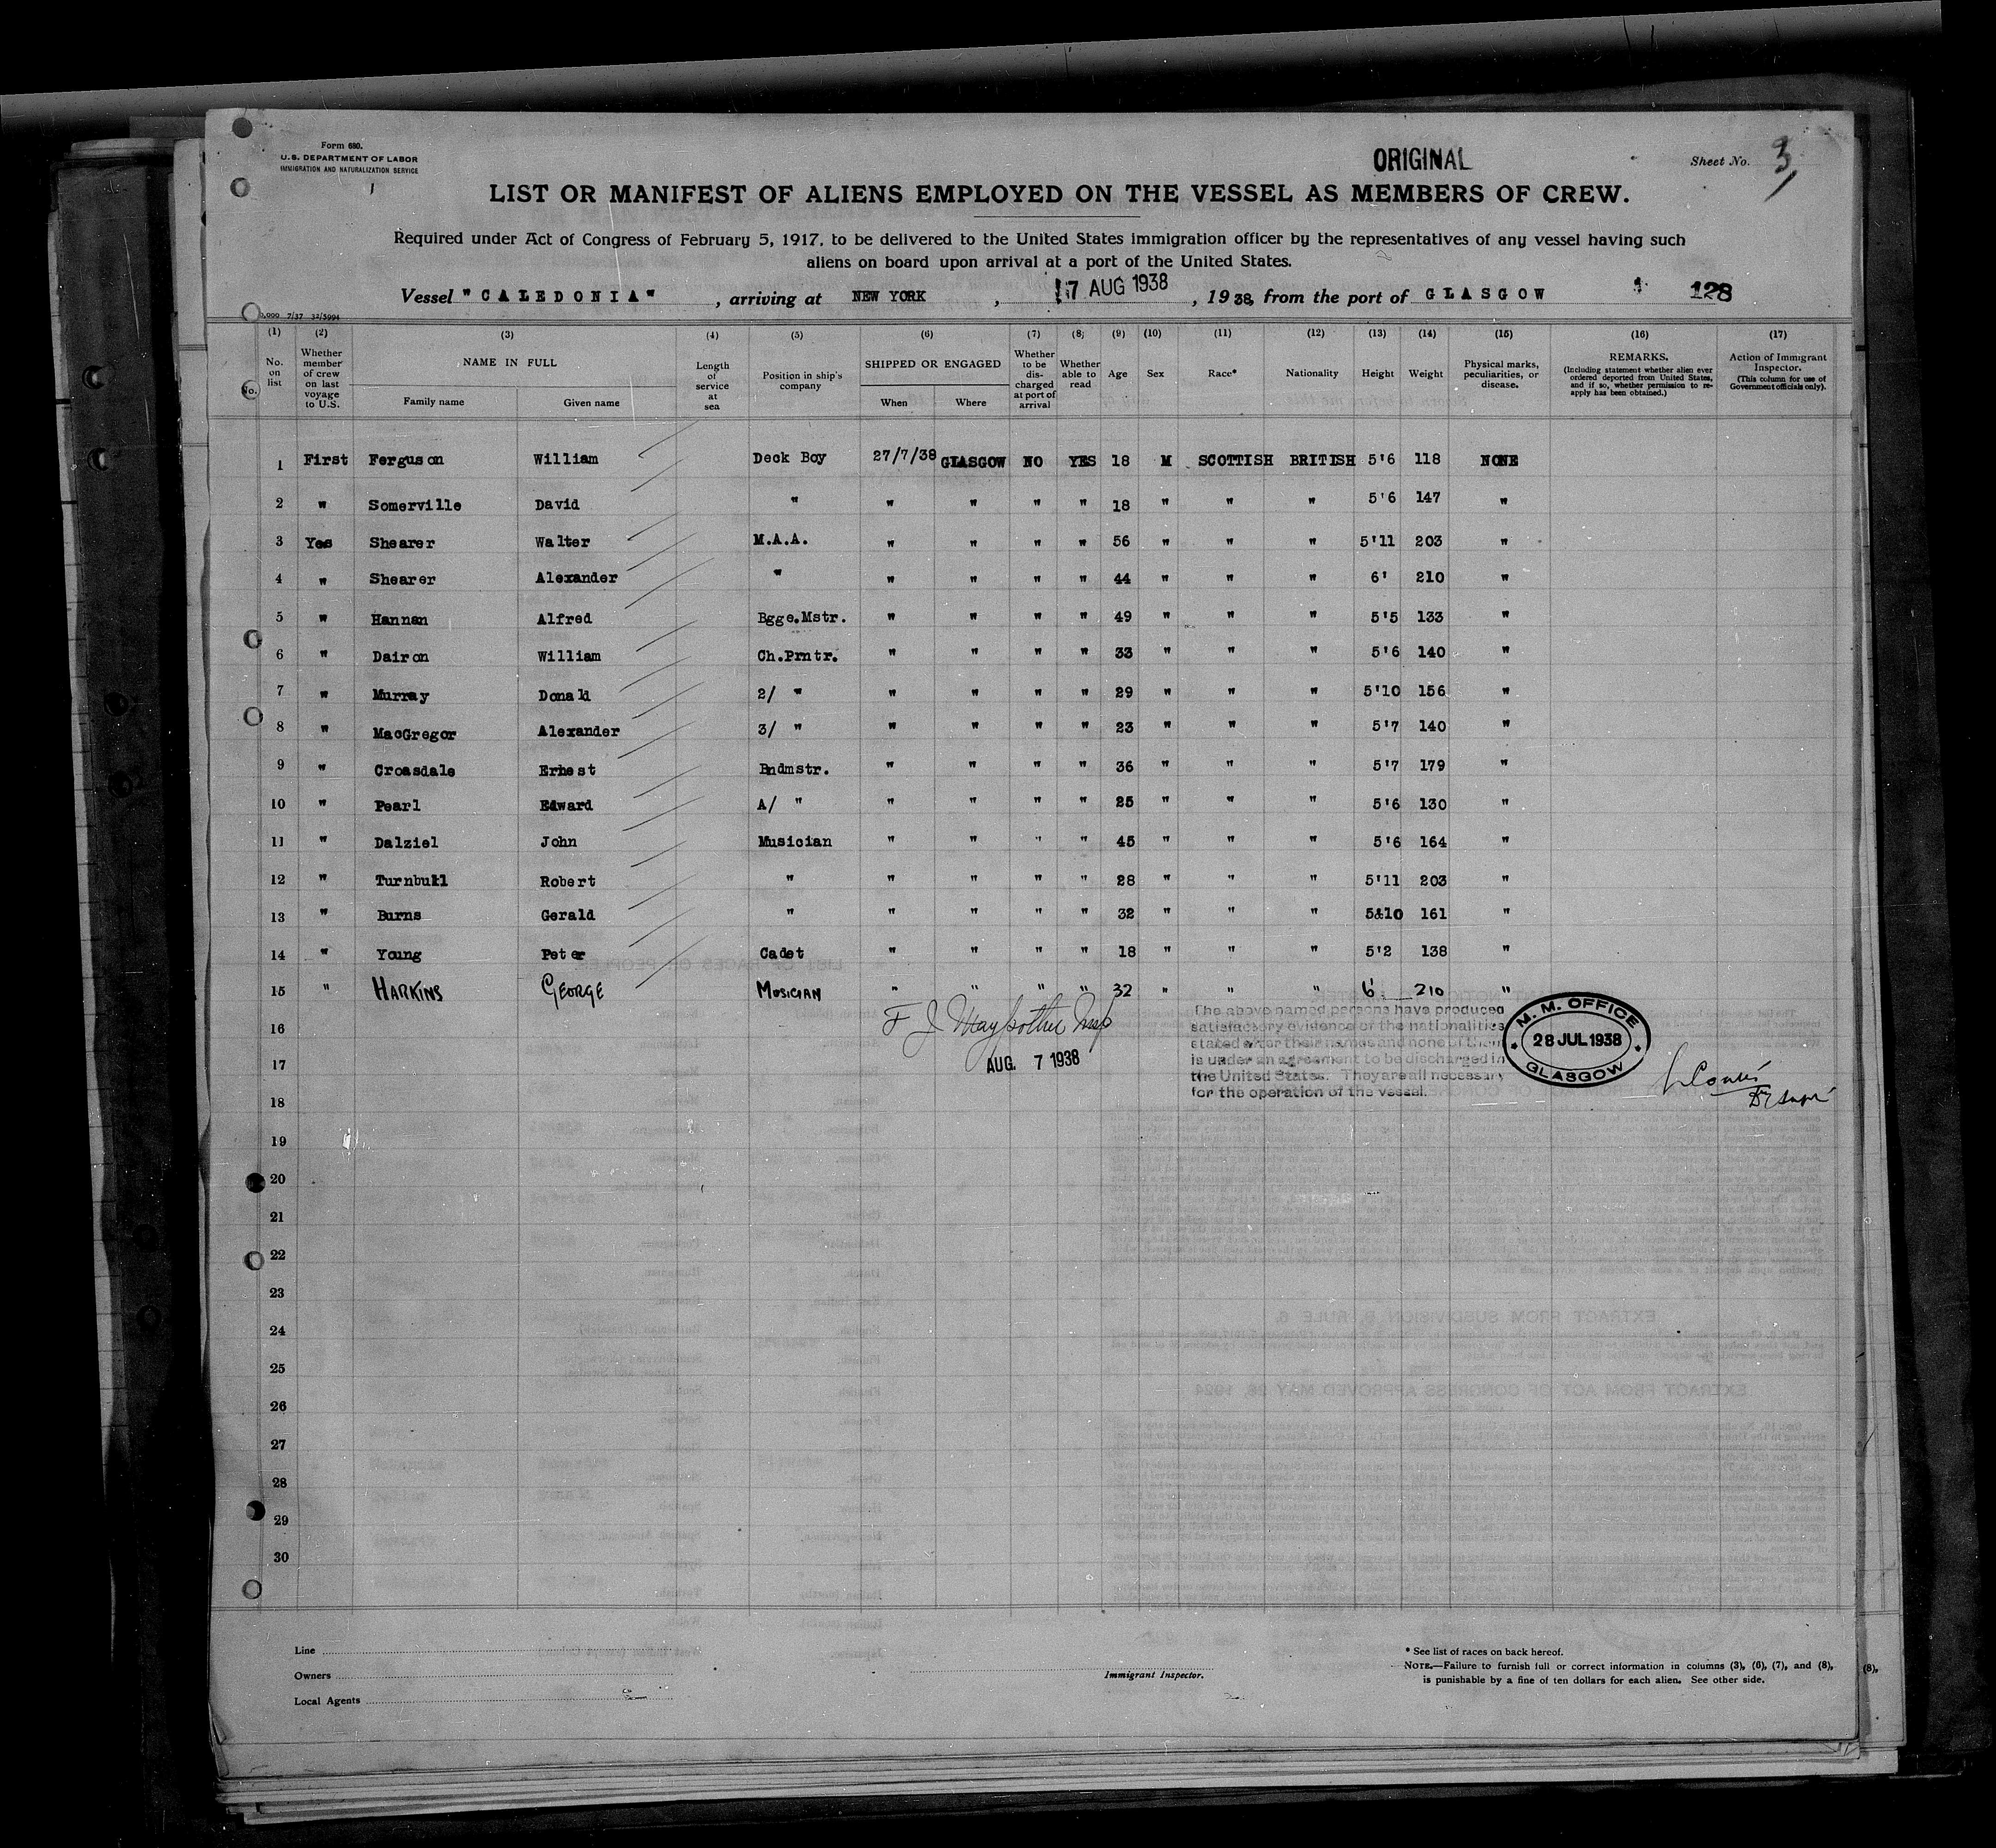 Form 680.
U.S. DEPARTMENT OF LABOR
IMMIGRATION AND NATURALIZATION SERVICE
ORIGINAL
Sheet No. 3
LIST OR MANIFEST OF ALIENS EMPLOYED ON THE VESSEL AS MEMBERS OF CREW.
Required under Act of Congress of February 5, 1917, to be delivered to the United States immigration officer by the representatives of any vessel having such
aliens on board upon arrival at a port of the United States.
Vessel "CALEDONIA", arriving at NEW YORK, 7 AUG 1938, 1938, from the port of GLASGOW 128
0,000 7/37 32/5994
(1) (2) (3) (4) (5) (6) (7) (8) (9) (10) (11) (12) (13) (14) (15) (16) (17)
No. on list
Whether member of crew on last voyage to U.S.
NAME IN FULL
Family name Given name
Length of service at sea
Position in ship's company
SHIPPED OR ENGAGED
When Where
Whether to be discharged at port of arrival
Whether able to read
Age Sex Race* Nationality Height Weight
Physical marks, peculiarities, or disease.
REMARKS.
(Including statement whether alien ever ordered deported from United States, and if so, whether permission to reapply has been obtained.)
Action of Immigrant Inspector.
(This column for use of Government officials only).
No.
1 First Ferguson William Deck Boy 27/7/38 GLASGOW NO YES 18 M SCOTTISH BRITISH 5'6 118 NONE
2 " Somerville David " " " " " 18 " " " 5'6 147 "
3 Yes Shearer Walter M.A.A. " " " " 56 " " " 5'11 203 "
4 " Shearer Alexander " " " " " 44 " " " 6' 210 "
5 " Hannan Alfred Bgge.Mstr. " " " " 49 " " " 5'5 133 "
6 " Dairon William Ch.Prntr. " " " " 33 " " " 5'6 140 "
7 " Murray Donald 2/ " " " " " 29 " " " 5'10 156 "
8 " MacGregor Alexander 3/ " " " " " 23 " " " 5'7 140 "
9 " Croasdale Erhest Bndmstr. " " " " 36 " " " 5'7 179 "
10 " Pearl Edward A/ " " " " " 25 " " " 5'6 130 "
11 " Dalziel John Musician " " " " 45 " " " 5'6 164 "
12 " Turnbull Robert " " " " " 28 " " " 5'11 203 "
13 " Burns Gerald " " " " " 32 " " " 5&10 161 "
14 " Young Peter Cadet " " " " 18 " " " 5'2 138 "
15 " HARKINS GEORGE MUSICIAN " " " " 32 " " " 6' 210 "
16
17
18
19
20
21
22
23
24
25
26
27
28
29
30
F J
AUG. 7 1938
The above named persons have produced
satisfactory evidence of the nationalities
stated after their names and none of them
is under an agreement to be discharged in
the United States. They are all necessary
for the operation of the vessel.
M. M. OFFICE
28 JUL 1938
GLASGOW
Line
Owners
Local Agents
Immigrant Inspector.
* See list of races on back hereof.
NOTE.—Failure to furnish full or correct information in columns (3), (6), (7), and (8),
is punishable by a fine of ten dollars for each alien. See other side.
(8),